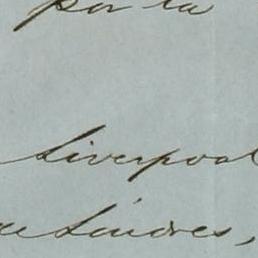 por la
Liverpool
de Londres,